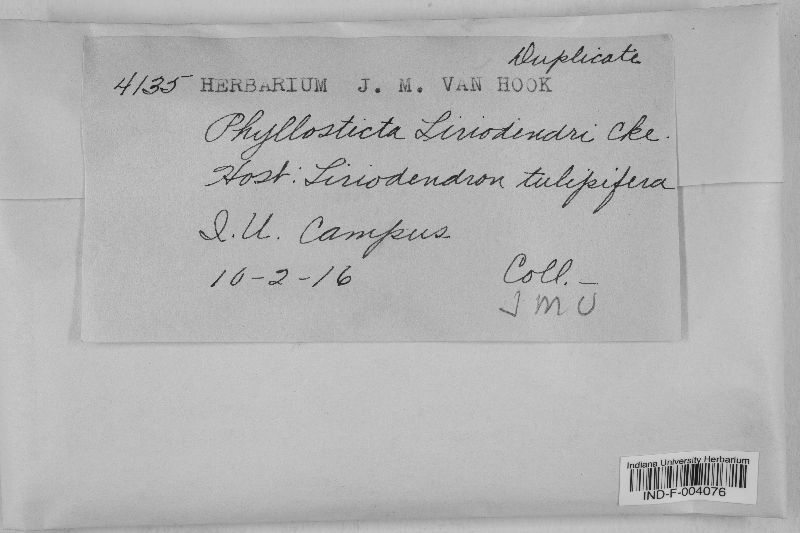 Duplicate
4135 HERBARIUM J. M. VAN HOOK
Phyllosticta Liriodendri Cke.
Host: Liriodendron tulipifera
I.U. Campus
10-2-16 Coll. –
J M V
Indiana University Herbarium
IND-F-004076